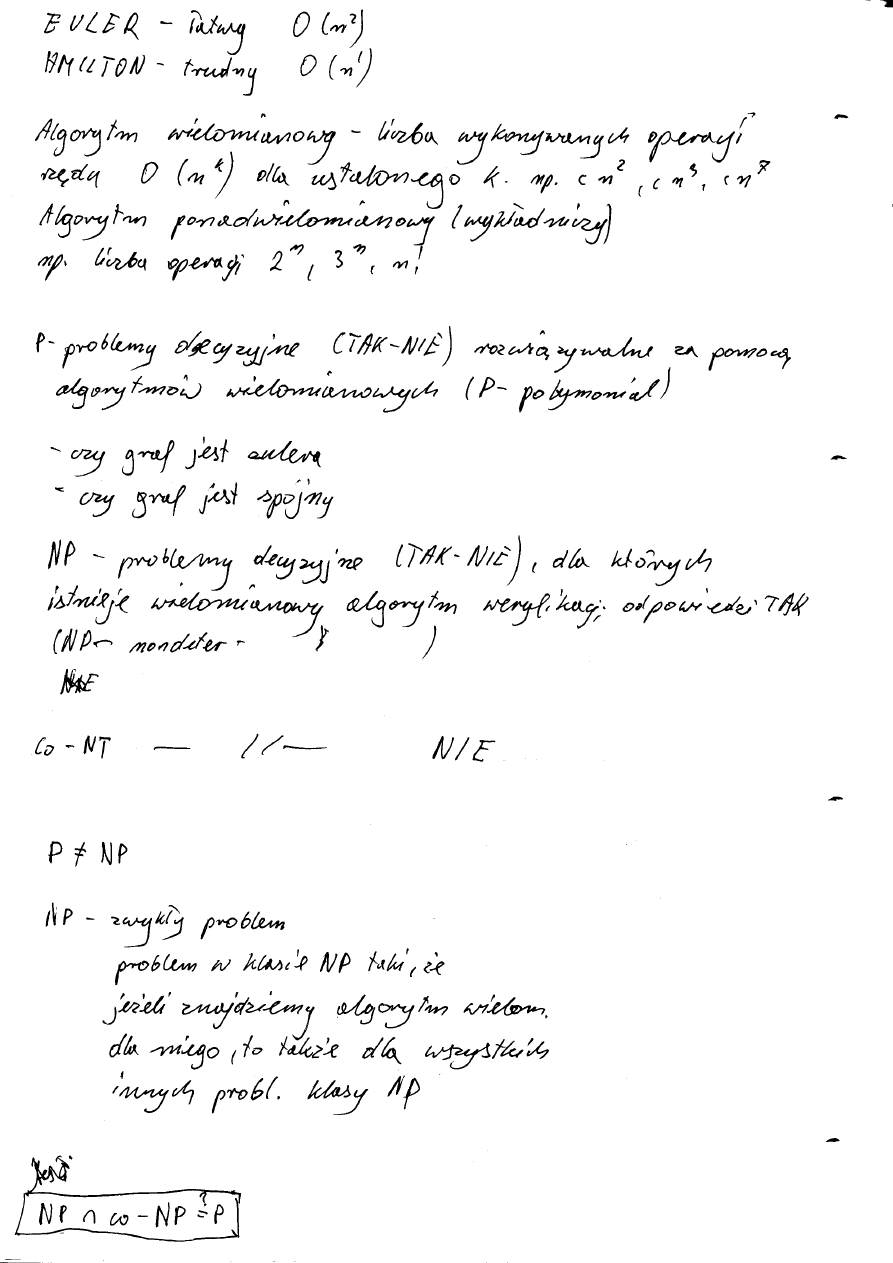 EULER - łatwy O(n²)
HAMILTON - trudny O(n!)
Algorytm wielomianowy - liczba wykonywanych operacji
rzędu O(n^k) dla ustalonego k. np. cn², cn³, cn⁷
Algorytm ponadwielomianowy (wykładniczy)
np. liczba operacji 2ⁿ, 3ⁿ, n!
P - problemy decyzyjne (TAK-NIE) rozwiązywalne za pomocą
algorytmów wielomianowych (P - polymonial)
- czy graf jest eulera
- czy graf jest spójny
NP - problemy decyzyjne (TAK-NIE), dla których
istnieje wielomianowy algorytm weryfikacji odpowiedzi TAK
(NP - nondeter - )
co-NT — //— NIE
P ≠ NP
NP - zwykły problem
problem w klasie NP taki, że
jeżeli znajdziemy algorytm wielom.
dla niego, to także dla wszystkich
innych probl. klasy NP
NP ∩ co-NP ≟ P